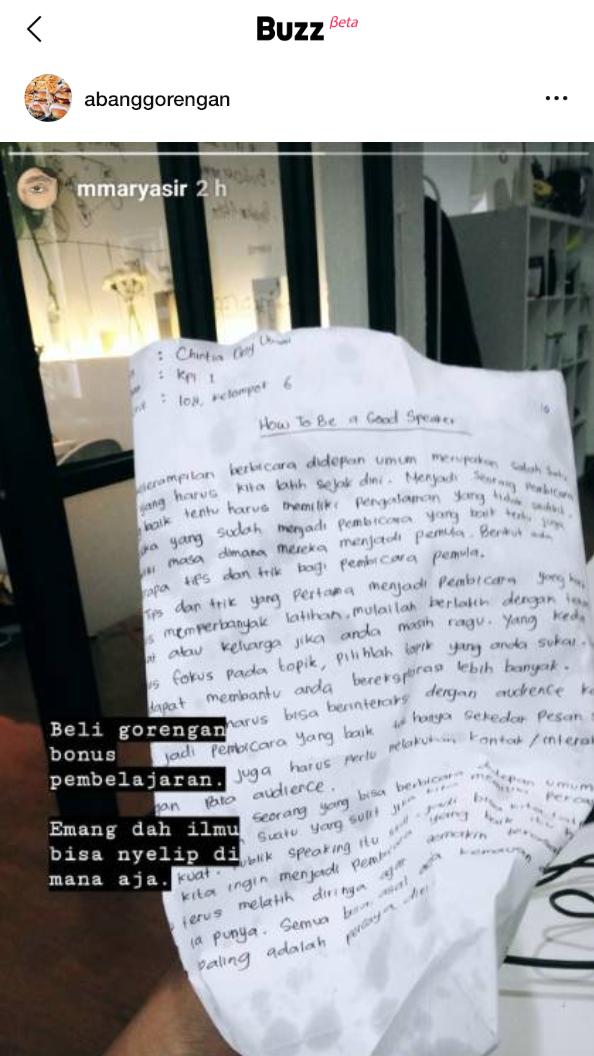 Buzz Beta
abanggorengan
mmaryasir 2 h
: Chintia
: KPI 1
: 104, kelompok 6
10
How To Be a Good Speaker
berbicara didepan umum merupakan salah satu
yang harus kita latih sejak dini. Menjadi seorang pembicara
baik tentu harus memiliki pengalaman yang tidak sedikit.
yang sudah menjadi pembicara yang baik tentu juga
masa dimana mereka menjadi pemula. Berikut ada
tips dan trik bagi pembicara pemula.
Tips dan trik yang pertama menjadi pembicara yang
memperbanyak latihan, mulailah berlatih dengan
atau keluarga jika anda masih ragu. Yang
fokus pada topik, pilihlah topik yang anda sukai.
dapat membantu anda bereksplorasi lebih banyak.
harus bisa berinteraksi dengan audience
jadi pembicara yang baik hanya sekedar pesan
juga harus perlu melakukan kontak /
para audience.
seorang yang bisa berbicara didepan umum
suatu yang sulit jika kita
kuat. publik speaking itu bisa
kita ingin menjadi pembicara yang baik
terus melatih dirinya agar semakin
ia punya. Semua bisa asal ada kemauan
paling adalah percaya diri
Beli gorengan
bonus
pembelajaran.
Emang dah ilmu
bisa nyelip di
mana aja.